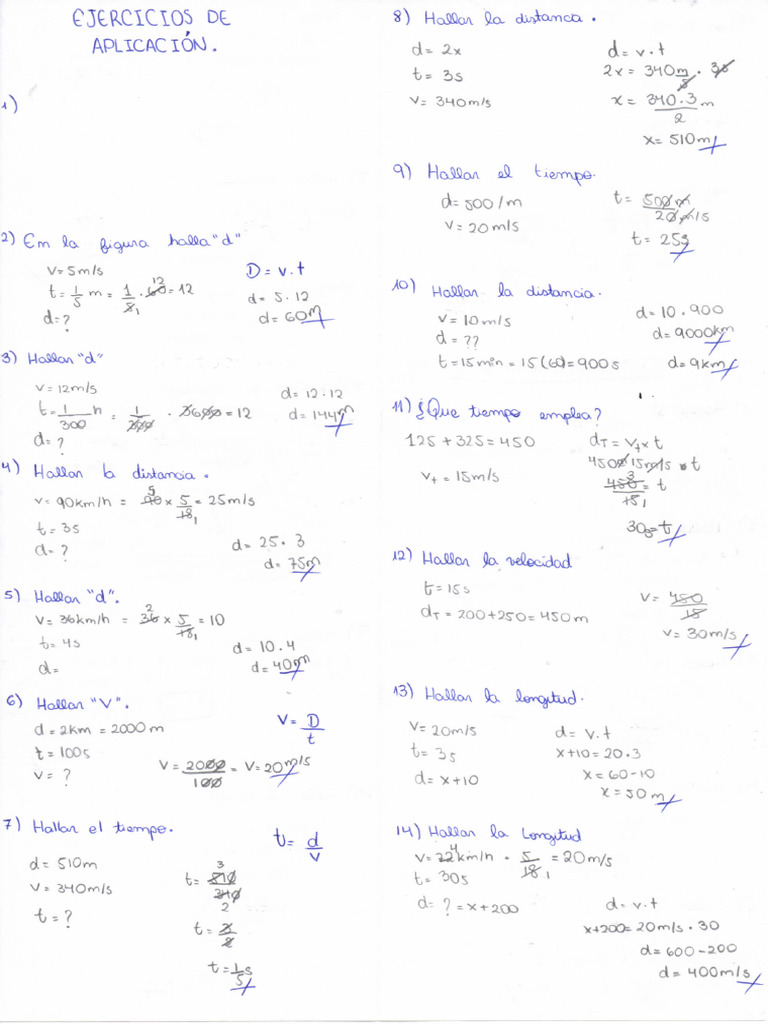 EJERCICIOS DE
APLICACIÓN.
1)
2) Em la figura halla "d"
v = 5m/s
t = 1/5 m = 1/5 1 . 60 12 = 12
d = ?
D = v.t
d = 5.12
d = 60m
3) Hallar "d"
v = 12m/s
t = 1/300 h = 1/300 . 3600 = 12
d = ?
d = 12.12
d = 144m
4) Hallar la distancia.
v = 90km/h = 90 5 x 5/18 1 = 25m/s
t = 3s
d = ?
d = 25.3
d = 75m
5) Hallar "d".
v = 36km/h = 36 2 x 5/18 1 = 10
t = 4s
d =
d = 10.4
d = 40m
6) Hallar "V".
d = 2km = 2000m
t = 100s
v = ?
V = D/t
V = 2000/100 = V = 20m/s
7) Hallar el tiempo.
d = 510m
v = 340m/s
t = ?
t = d/v
t = 510 3/340 2
t = 3/2
t = 1/5 s
8) Hallar la distancia.
d = 2x
t = 3s
v = 340m/s
d = v.t
2x = 340m/s . 3s
x = 340.3/2 m
x = 510m
9) Hallar el tiempo.
d = 500/m
v = 20m/s
t = 500m/20m/s
t = 25s
10) Hallar la distancia.
v = 10m/s
d = ??
t = 15min = 15(60) = 900s
d = 10.900
d = 9000km
d = 9km
11) ¿Que tiempo emplea?
125 + 325 = 450
v+ = 15m/s
dT = v+ x t
450 15m/s . t
450 3/15 1 = t
30s = t
12) Hallar la velocidad
t = 15s
dT = 200+250 = 450m
v = 450/15
v = 30m/s
13) Hallar la longitud.
v = 20m/s
t = 3s
d = x+10
d = v.t
x+10 = 20.3
x = 60-10
x = 50m
14) Hallar la Longitud
v = 72 4 km/h . 5/18 1 = 20m/s
t = 30s
d = ? = x+200
d = v.t
x+200 = 20m/s . 30
d = 600-200
d = 400m/s